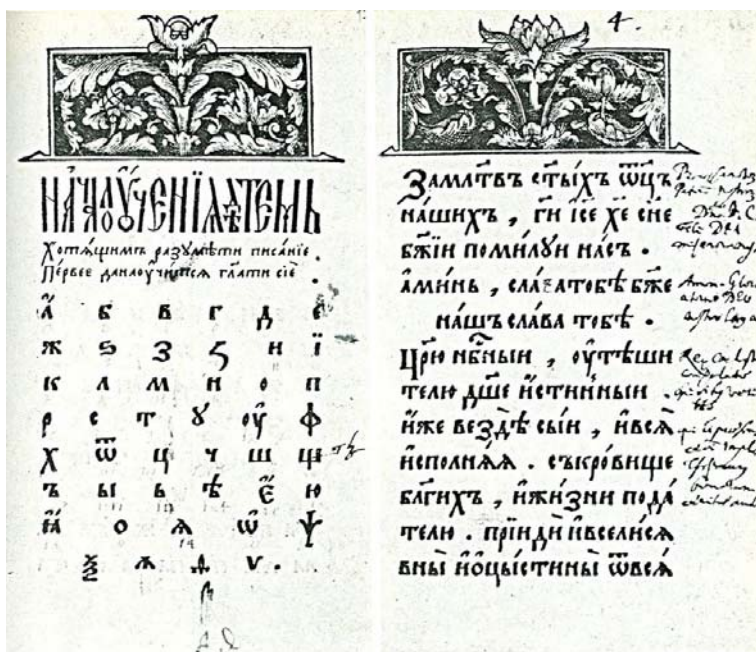 НАЧАЛО ОУЧЕНЇЯ ДѢТЕМЪ
Хотѧ́щимъ разꙋмѣ́ти писа́нїе .
Пе́рвее данаоу́чишсѧ гл҃ати сїѐ .
А҆ б в г д е
ж ѕ з ꙁ и ї
к л м н о п
р с т ꙋ оу҆ ф
х ѿ ц ч ш щ
ъ ы ь ѣ є҆ ю
ꙗ҆ о ѧ ѡ҆ ѱ
ѯ ѧ ѳ ѵ .
4.
Замл҃твъ ст҃ы́хъ ѿц҃ъ
на́шихъ , гѝ і҆с҃е хе҃ сн҃е
бж҃їи поми́лꙋи на́съ .
а҆ми́нь , сла́ва тобѣ̀ бж҃е
на́шъ сла́ва тобѣ̀ .
Цр҃ю нб҃ныи , оу҆тѣ́ши
телю дш҃е и҆́стинныи .
и҆́же вездѣ̀ сы́и , и҆всѧ̀
и҆сполнѧ́ѧ . съкро́вище
бл҃ги́хъ , и҆жи́зни пода́
телю . прїидѝ и҆всели́сѧ
вны̀ и҆ѡ҆цы́стины̀ ѿвсѧ́